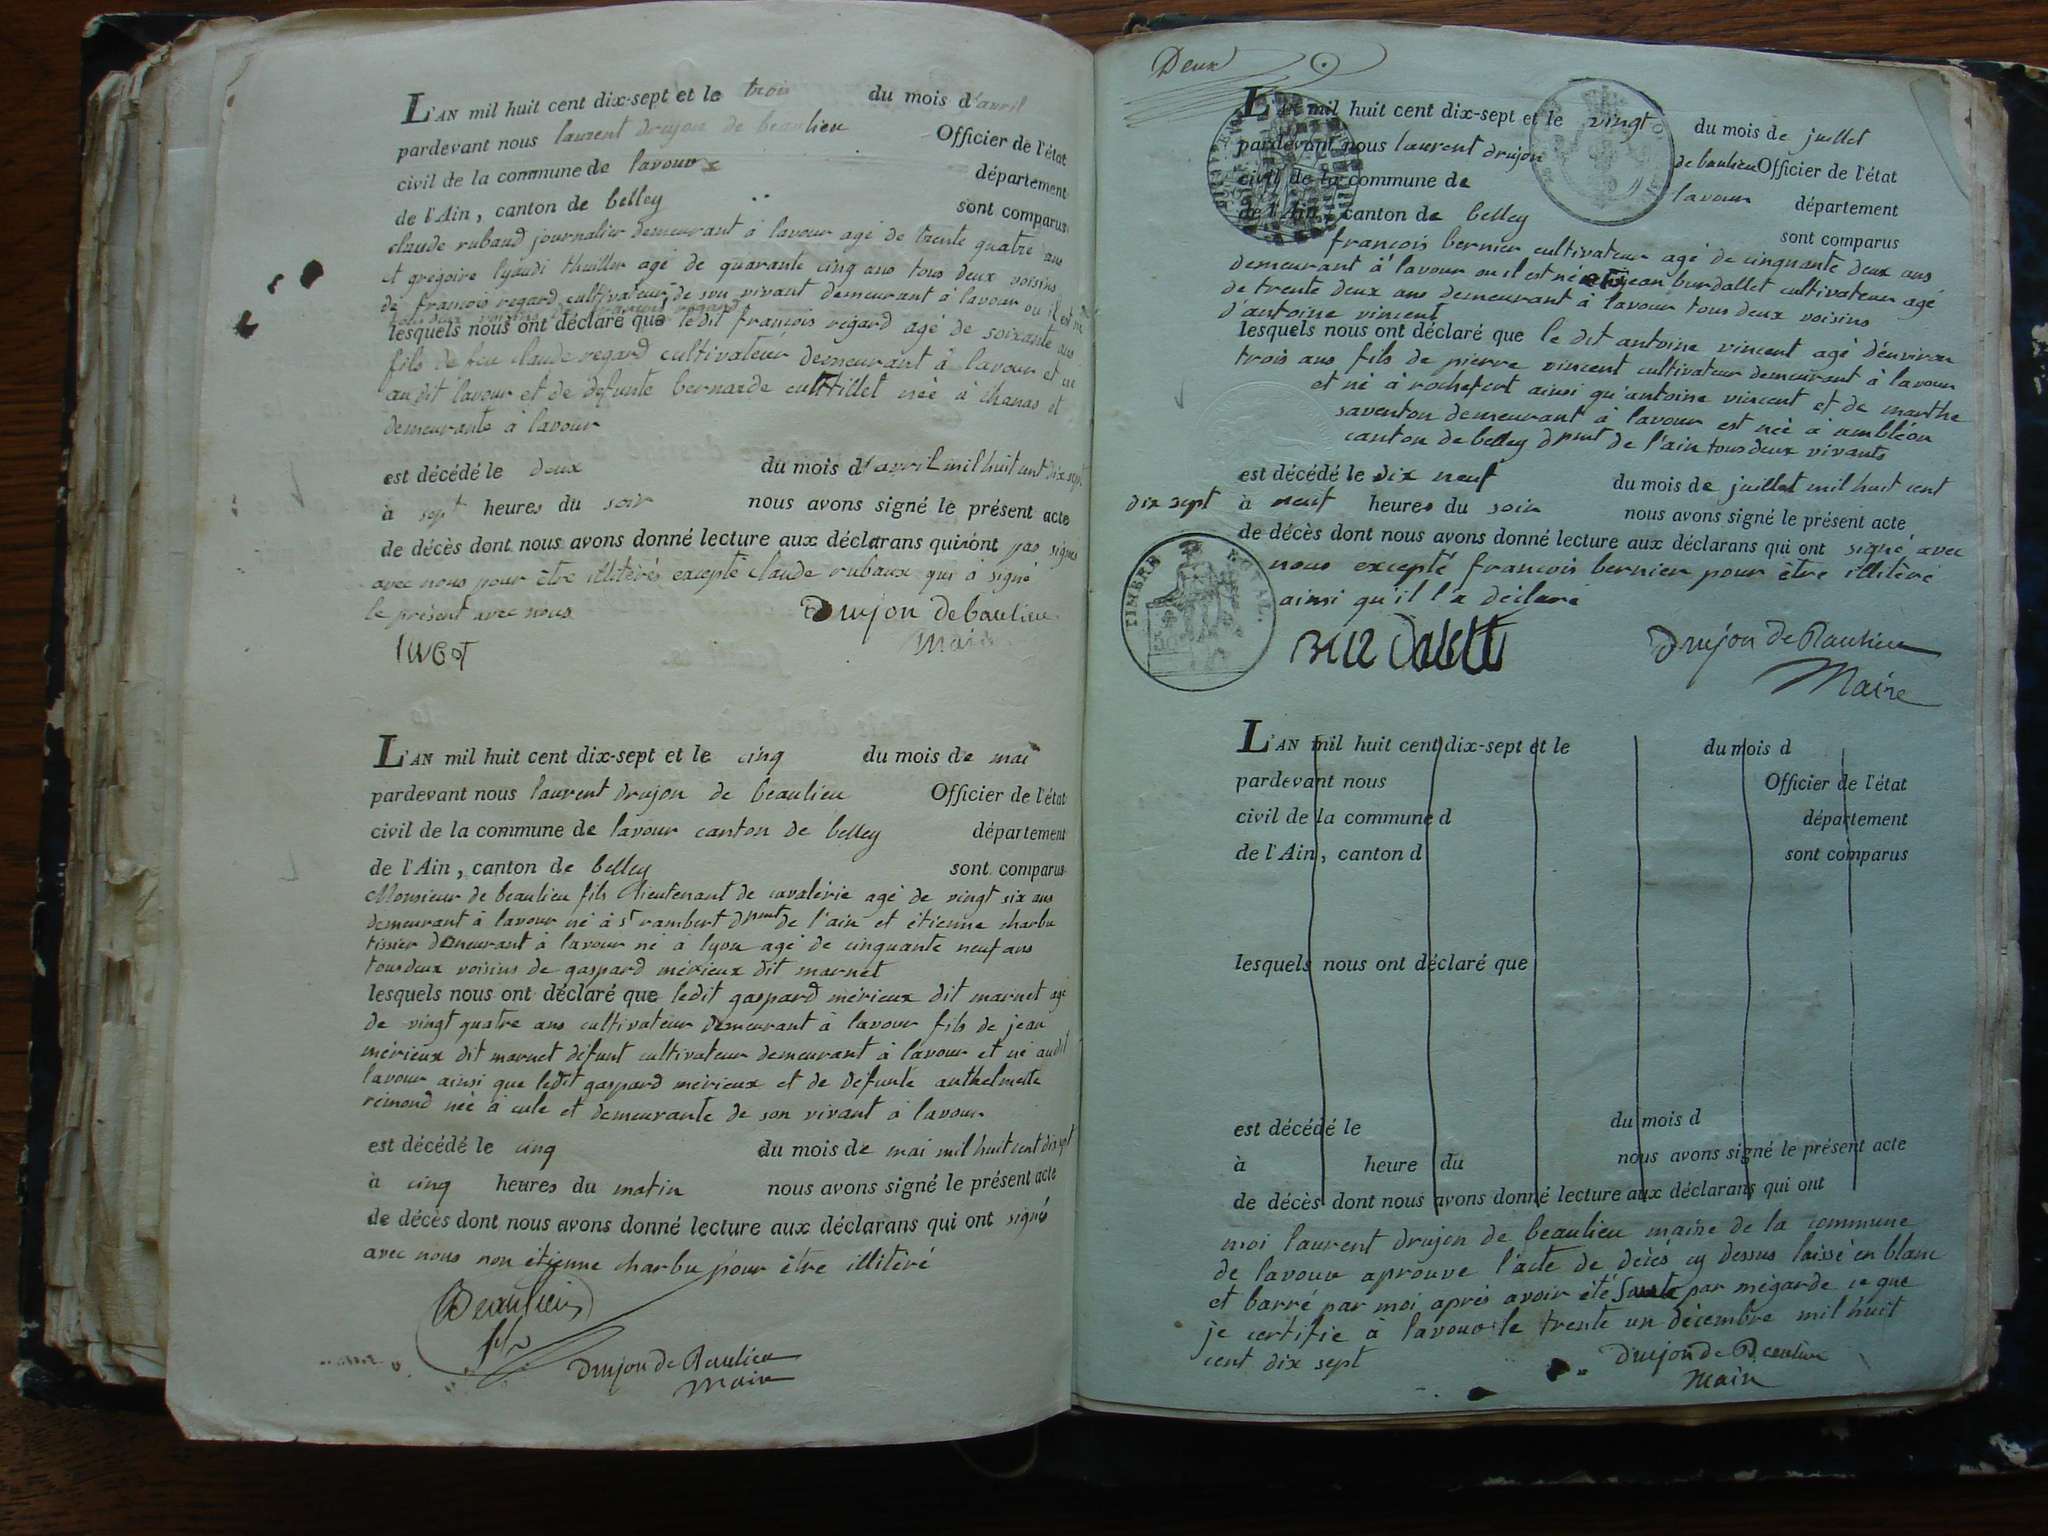 L'AN mil huit cent dix-sept et le trois du mois d'avril
pardevant nous laurent drujon de beaulieu Officier de l'état
civil de la commune de lavour département
de l'Ain, canton de belley sont comparus
claude rubaud journalier demeurant à lavour agé de trente quatre ans
et grégoire lyaudi thuillier agé de quarante cinq ans tous deux voisins
de françois regard cultivateur de son vivant demeurant à lavour ou il est né
lesquels nous ont déclaré que ledit françois regard agé de soixante ans
fils de feu claude regard cultivateur demeurant à lavour et né
audit lavour et de défunte bernarde née à chanas et
demeurante à lavour
est décédé le deux du mois d'avril mil huit cent dix sept
à sept heures du soir nous avons signé le présent acte
de décès dont nous avons donné lecture aux déclarans qui n'ont pas signés
avec nous pour être illitérés excepté claude rubaux qui à signé
le présent avec nous Drujon de baulieu
Maire
L'AN mil huit cent dix-sept et le cinq du mois de mai
pardevant nous laurent drujon de beaulieu Officier de l'état
civil de la commune de lavour canton de belley département
de l'Ain, canton de belley sont comparus
Monsieur de beaulieu fils lieutenant de cavalérie agé de vingt six ans
demeurant à lavour né à st rambert dpmt de l'ain et étienne charbu
tissier demeurant à lavour né à lyon agé de cinquante neuf ans
tous deux voisins de gaspard mérieux dit marnet
lesquels nous ont déclaré que ledit gaspard mérieux dit marnet agé
de vingt quatre ans cultivateur demeurant à lavour fils de jean
mérieux dit marnet défunt cultivateur demeurant à lavour et né audit
lavour ainsi que ledit gaspard mérieux et de défunte anthelmette
rémond née à cule et demeurante de son vivant à lavour
est décédé le cinq du mois de mai mil huit cent dix sept
à cinq heures du matin nous avons signé le présent acte
de décès dont nous avons donné lecture aux déclarans qui ont signés
avec nous non étienne charbu pour être illitéré
Beaulieu
fils
Drujon de Beaulieu
Maire
Deux
L'AN mil huit cent dix-sept et le vingt du mois de juillet
pardevant nous laurent drujon de baulieu Officier de l'état
civil de la commune de lavour département
de l'Ain, canton de belley sont comparus
françois bernier cultivateur agé de cinquante deux ans
demeurant à lavour ou il est né et jean burdallet cultivateur agé
de trente deux ans demeurant à lavour tous deux voisins
d'antoine vincent
lesquels nous ont déclaré que le dit antoine vincent agé d'environ
trois ans fils de pierre vincent cultivateur demeurant à lavour
et né à rochefort ainsi qu'antoine vincent et de marthe
saventon demeurant à lavour est née à ambléon
canton de belley dpmt de l'ain tous deux vivants
est décédé le dix neuf du mois de juillet mil huit cent
dix sept à neuf heures du soir nous avons signé le présent acte
de décès dont nous avons donné lecture aux déclarans qui ont signé avec
nous excepté françois bernier pour être illitéré
ainsi qu'il l'a déclaré
TIMBRE ROYAL.
Drujon de Baulieu
Maire
L'AN mil huit cent dix-sept et le du mois d
pardevant nous Officier de l'état
civil de la commune d département
de l'Ain, canton d sont comparus
lesquels nous ont déclaré que
est décédé le du mois d
à heure du nous avons signé le présent acte
de décès dont nous avons donné lecture aux déclarans qui ont
moi laurent drujon de beaulieu maire de la commune
de lavour aprouve l'acte de décès cy dessus laissé en blanc
et barré par moi après avoir été Sauté par mégarde ce que
je certifie à lavour le trente un décembre mil huit
cent dix sept Drujon de Beaulieu
Maire